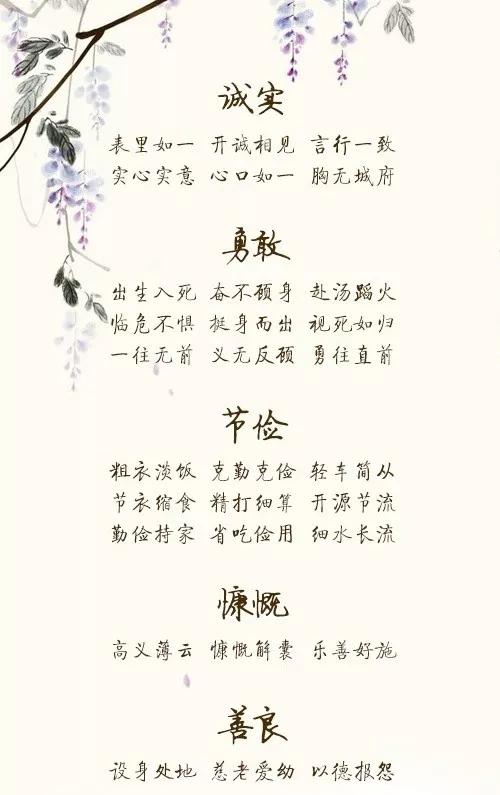 诚实
表里如一 开诚相见 言行一致
实心实意 心口如一 胸无城府
勇敢
出生入死 奋不顾身 赴汤蹈火
临危不惧 挺身而出 视死如归
一往无前 义无反顾 勇往直前
节俭
粗衣淡饭 克勤克俭 轻车简从
节衣缩食 精打细算 开源节流
勤俭持家 省吃俭用 细水长流
慷慨
高义薄云 慷慨解囊 乐善好施
善良
设身处地 慈老爱幼 以德报怨